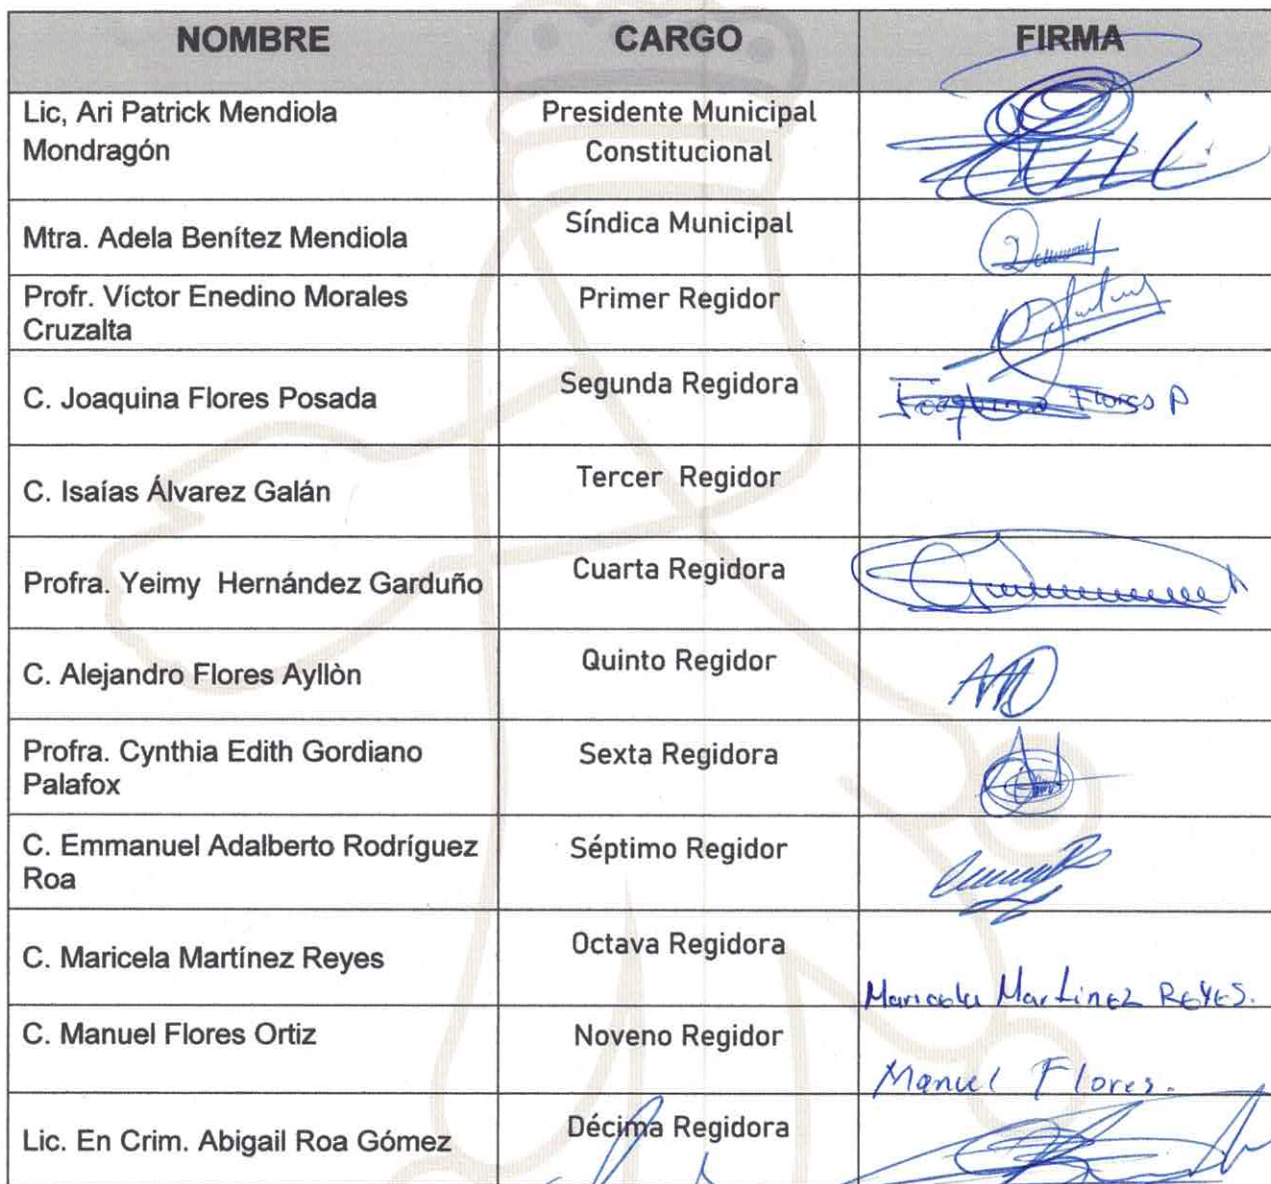 NOMBRE CARGO FIRMA
Lic, Ari Patrick Mendiola Presidente Municipal
Mondragón Constitucional
Mtra. Adela Benítez Mendiola Síndica Municipal
Profr. Víctor Enedino Morales Primer Regidor
Cruzalta
C. Joaquina Flores Posada Segunda Regidora Joaquina Flores P
C. Isaías Álvarez Galán Tercer Regidor
Profra. Yeimy Hernández Garduño Cuarta Regidora
C. Alejandro Flores Ayllòn Quinto Regidor
Profra. Cynthia Edith Gordiano Sexta Regidora
Palafox
C. Emmanuel Adalberto Rodríguez Séptimo Regidor
Roa
C. Maricela Martínez Reyes Octava Regidora
Maricela Martinez REYES.
C. Manuel Flores Ortiz Noveno Regidor
Manuel Flores.
Lic. En Crim. Abigail Roa Gómez Décima Regidora